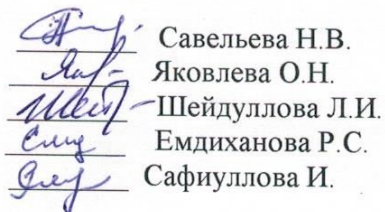 Савельева Н.В.
Яковлева О.Н.
Шейдуллова Л.И.
Емдиханова Р.С.
Сафиуллова И.